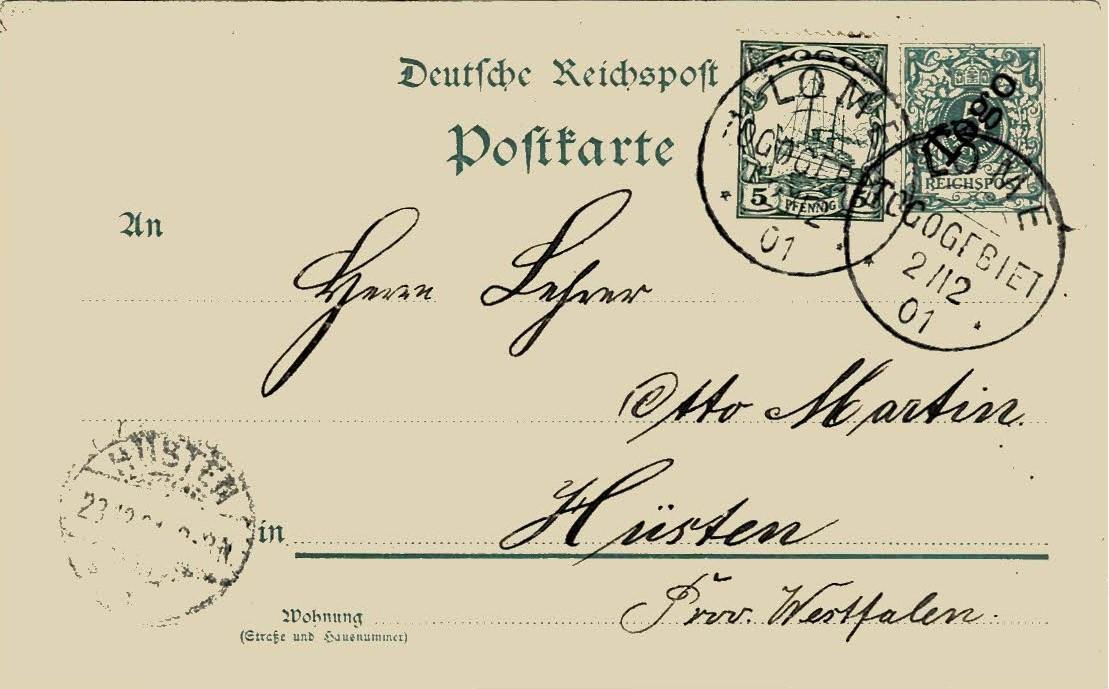 Deutsche Reichspost
Postkarte
TOGO
5 PFENNIG 5
Togo
REICHSPOST
LOME
TOGOGEBIET
01
LOME
TOGOGEBIET
2/12
01
An
Herrn Lehrer
Otto Martin.
HÜSTEN
23
in
Hüsten
Prov. Westfalen.
Wohnung
(Straße und Hausnummer)